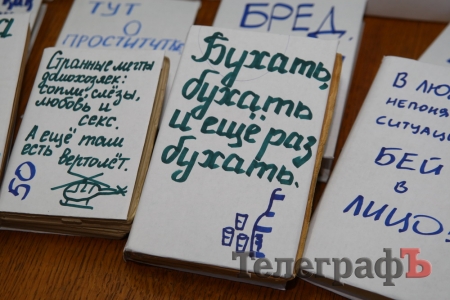 ТУТ
О
ПРОСТИТУТКЕ
БРЕД.
Странные мечты
домохозяек:
сопли, слёзы,
любовь и
секс.
А ещё там
есть вертолёт.
50
Бухать,
бухать
и ещё раз
бухать.
В ЛЮ
НЕПОНЯ
СИТУАЦИ
БЕЙ
В
ЛИЦО!
ТелеграфЪ